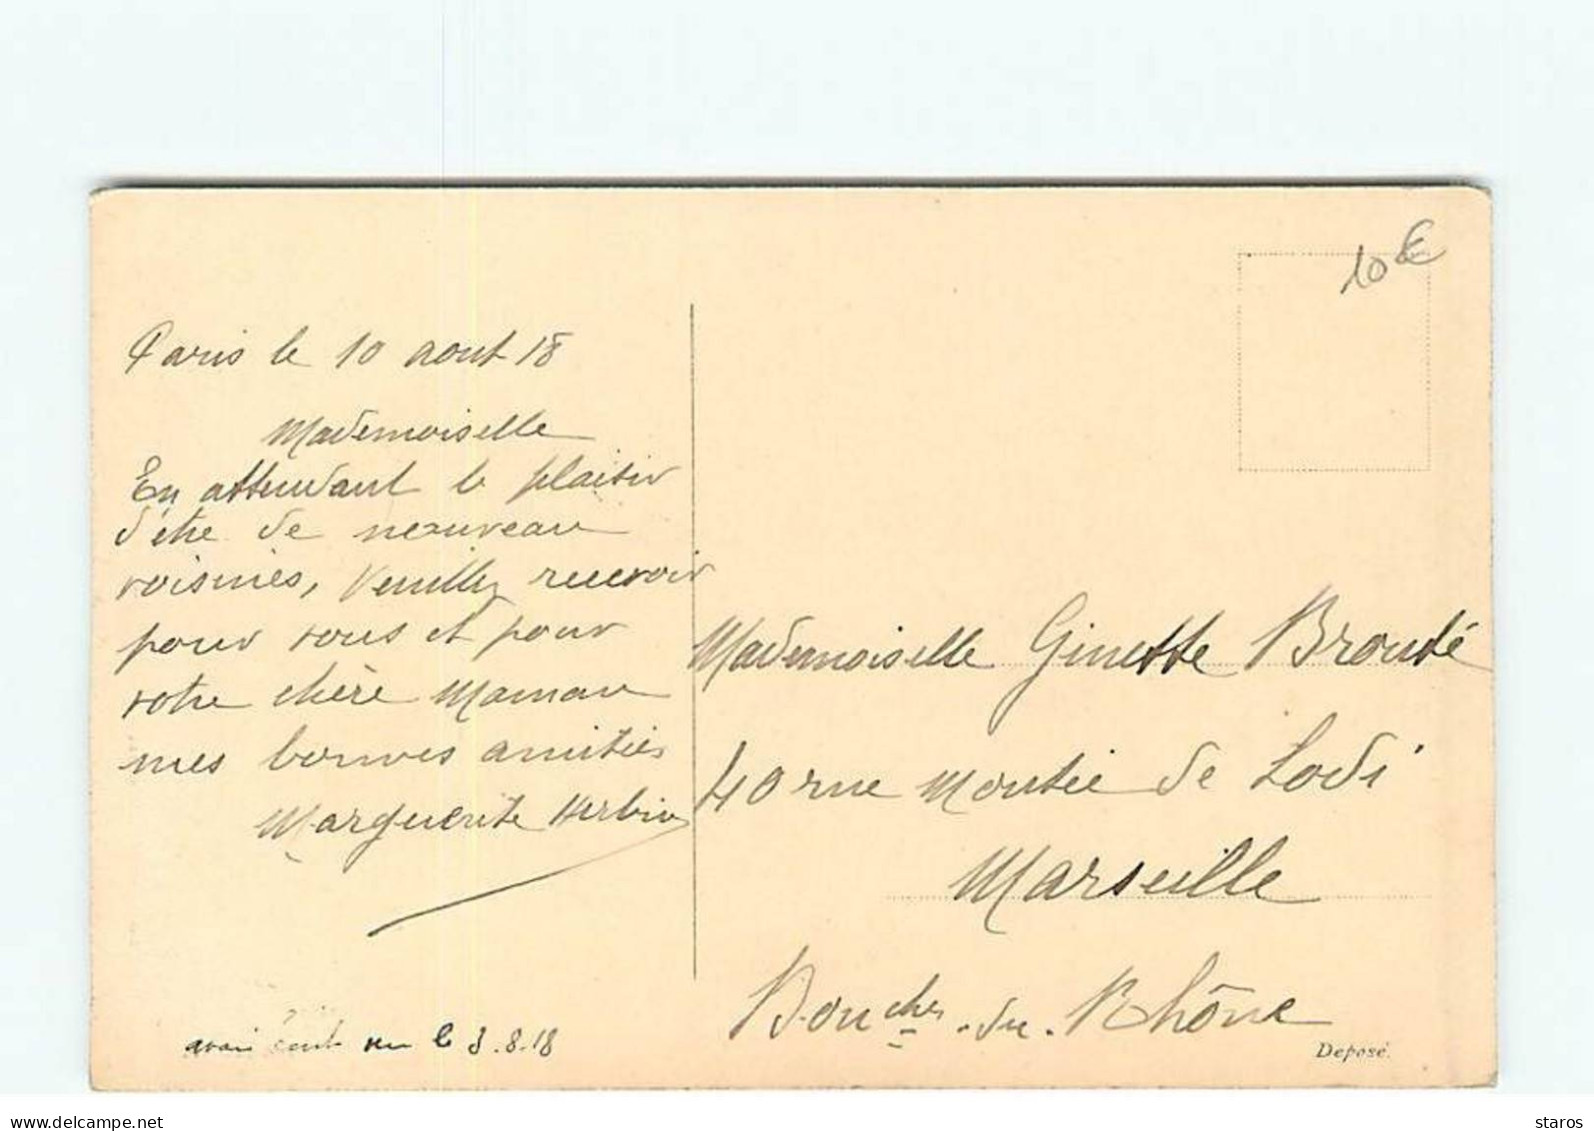 10 €
Paris le 10 aout 18
Mademoiselle
En attendant le plaisir
d'être de nouveau
voisines, Veuillez recevoir
pour vous et pour
votre chère Maman
mes bonnes amitiés
Marguerite Herbin
avai écrit le 3.8.18
Mademoiselle Ginette Brouté
40 rue Montée de Lodi
Marseille
Bouches-du-Rhône
Deposé.
www.delcampe.net
staros